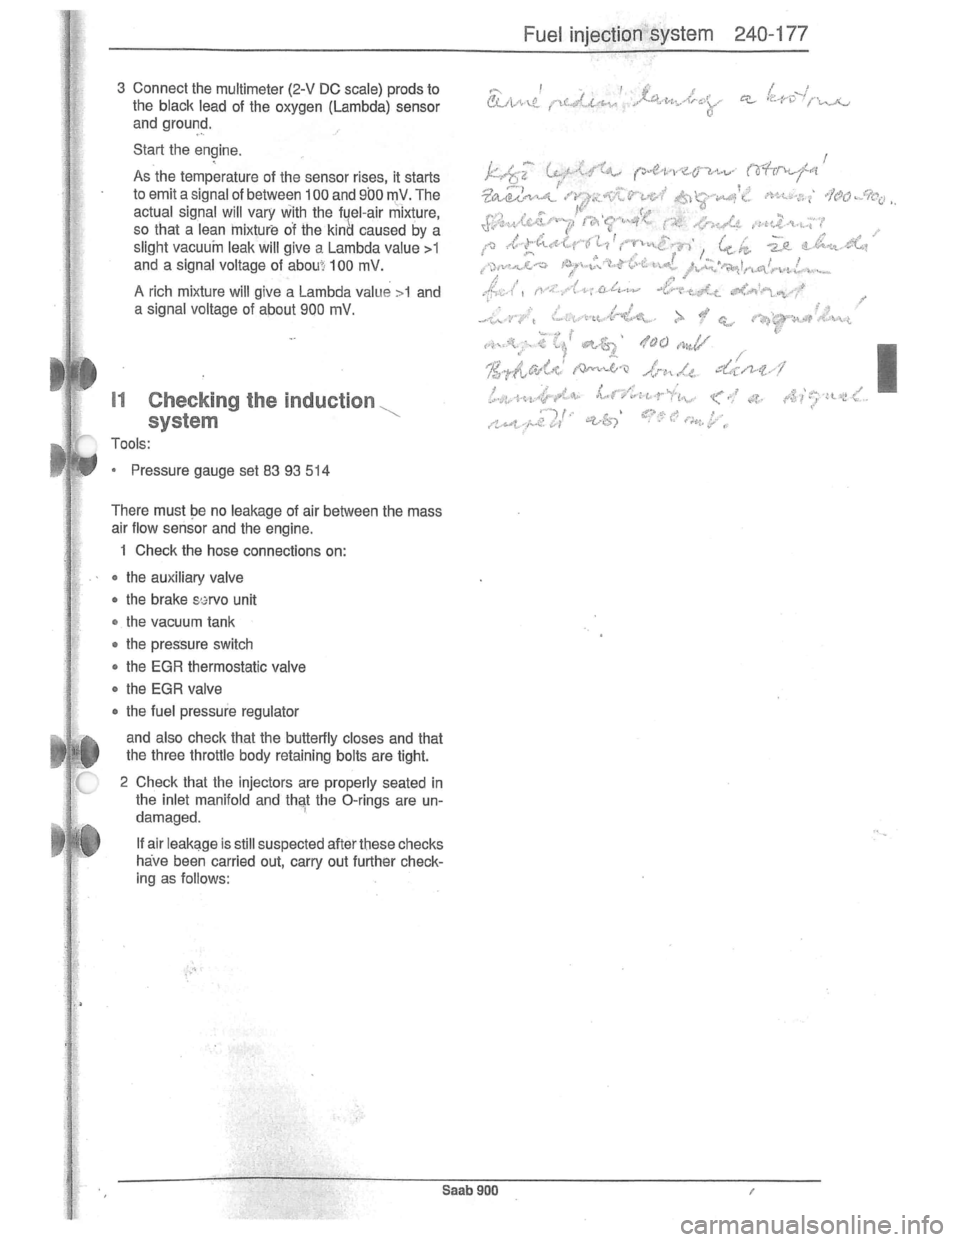 Fuel injection system 240-177
3 Connect the multimeter (2-V DC scale) prods to
the black lead of the oxygen (Lambda) sensor
and ground.
Start the engine.
As the temperature of the sensor rises, it starts
to emit a signal of between 100 and 900 mV. The
actual signal will vary with the fuel-air mixture,
so that a lean mixture of the kind caused by a
slight vacuum leak will give a Lambda value >1
and a signal voltage of about 100 mV.
A rich mixture will give a Lambda value >1 and
a signal voltage of about 900 mV.
I1 Checking the induction
system
Tools:
• Pressure gauge set 83 93 514
There must be no leakage of air between the mass
air flow sensor and the engine.
1 Check the hose connections on:
• the auxiliary valve
• the brake servo unit
• the vacuum tank
• the pressure switch
• the EGR thermostatic valve
• the EGR valve
• the fuel pressure regulator
and also check that the butterfly closes and that
the three throttle body retaining bolts are tight.
2 Check that the injectors are properly seated in
the inlet manifold and that the O-rings are un-
damaged.
If air leakage is still suspected after these checks
have been carried out, carry out further check-
ing as follows:
lambdy a
když teplota senzoru stoupá
začíná signál mezi 100-900
signál se bude
, tak že chudá
směs způsobená
bude dávat
Lambda > 1 a
napětí asi 100 mV
Bohatá směs bude dávat
lambda hodnotu <1 a signal
napětí asi 900 mV.
Saab 900
carmanualsonline.info